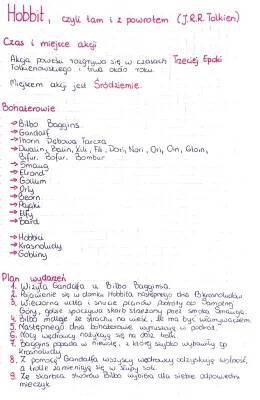 Hobbit, czyli tam i z powrotem (J.R.R. Tolkien)
Czas i miejsce akcji
Akcja powieści rozgrywa się w czasach Trzeciej Epoki
Tolkienowskiego i trwa około roku.
Miejscem akcji jest Śródziemie.
Bohaterowie
→ Bilbo Baggins
→ Gandalf
→ Thorin Dębowa Tarcza
→ Dwalin, Balin, Kili, Fili, Dori, Nori, Ori, Oin, Gloin,
Bifur, Bofur, Bombur
→ Smaug
→ Elrond
→ Gollum
→ Orły
→ Beorn
→ Pająki
→ Elfy
→ Bard
→ Hobbici
→ Krasnoludy
→ Gobliny
Plan wydarzeń
1. Wizyta Gandalfa u Bilbo Bagginsa.
2. Pojawienie się w domku Hobbita następnego dnia 13 krasnoludów.
3. Wieczorna uczta i snucie planów podróży do Samotnej
Góry, gdzie spoczywa skarb strzeżony przez smoka Smauga.
4. Bilbo mdleje ze strachu na wieść, że ma być włamywaczem.
5. Następnego dnia bohaterowie wyruszają w podróż.
6. Nocą wędrowcy natykają się na obóz trolli.
7. Baggins popada w niewolę, z której szybko wybawią go
krasnoludy
8. Z pomocą Gandalfa wszyscy wędrowcy odzyskują wolność,
a trolle zamieniają się w słupy soli.
9. Ze skarbca stworów Bilbo wybiera dla siebie odpowiedni
mieczyk.